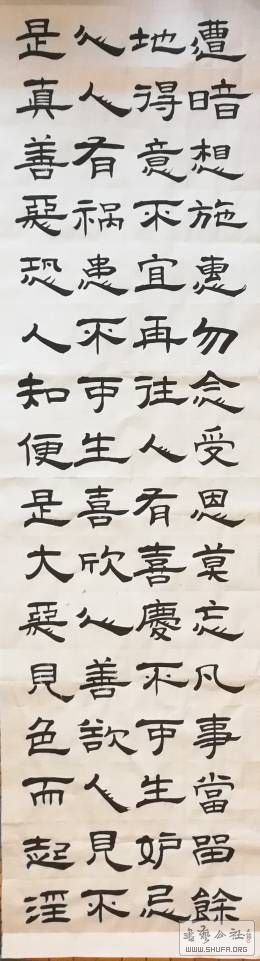 遭暗想施惠勿念受恩莫忘凡事當留餘
地得意不宜再往人有喜慶不可生妒忌
心人有禍患不可生喜欣心善欲人見不
是真善惡恐人知便是大惡見色而起淫
書藝公社
WWW.SHUFA.ORG